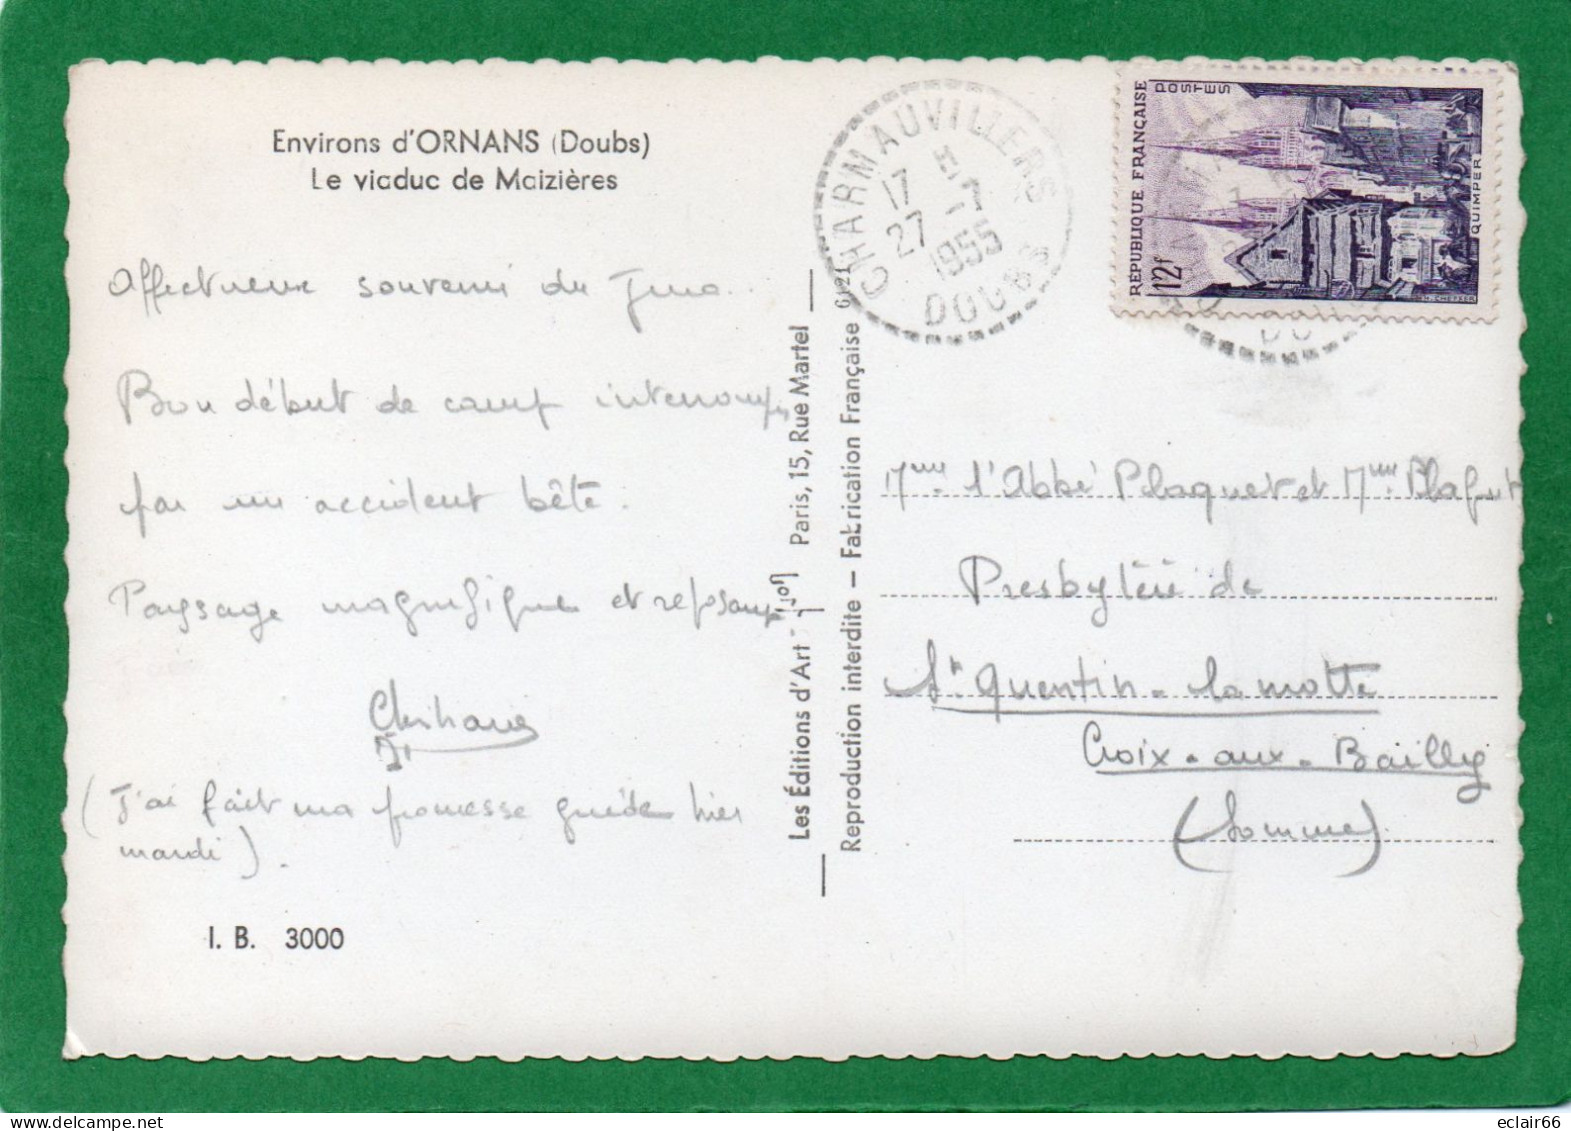 Environs d'ORNANS (Doubs)
Le viaduc de Maizières
Affectueux souvenir du Jura.
Bon début de camp interrompu
par un accident bête.
Paysage magnifique et reposant
(J'ai fait ma promesse guide hier
mardi).
I. B. 3000
Les Éditions d'Art
Paris, 15, Rue Martel
Reproduction interdite — Fabrication Française 6421
CHARMAUVILLERS
17 H
27 -7
1955
DOUBS
RÉPUBLIQUE FRANÇAISE
POSTES
12f
QUIMPER
l'Abbé Plaquet et
Presbytère de
St Quentin-la motte
Croix-aux-Bailly
(Somme)
eclair66